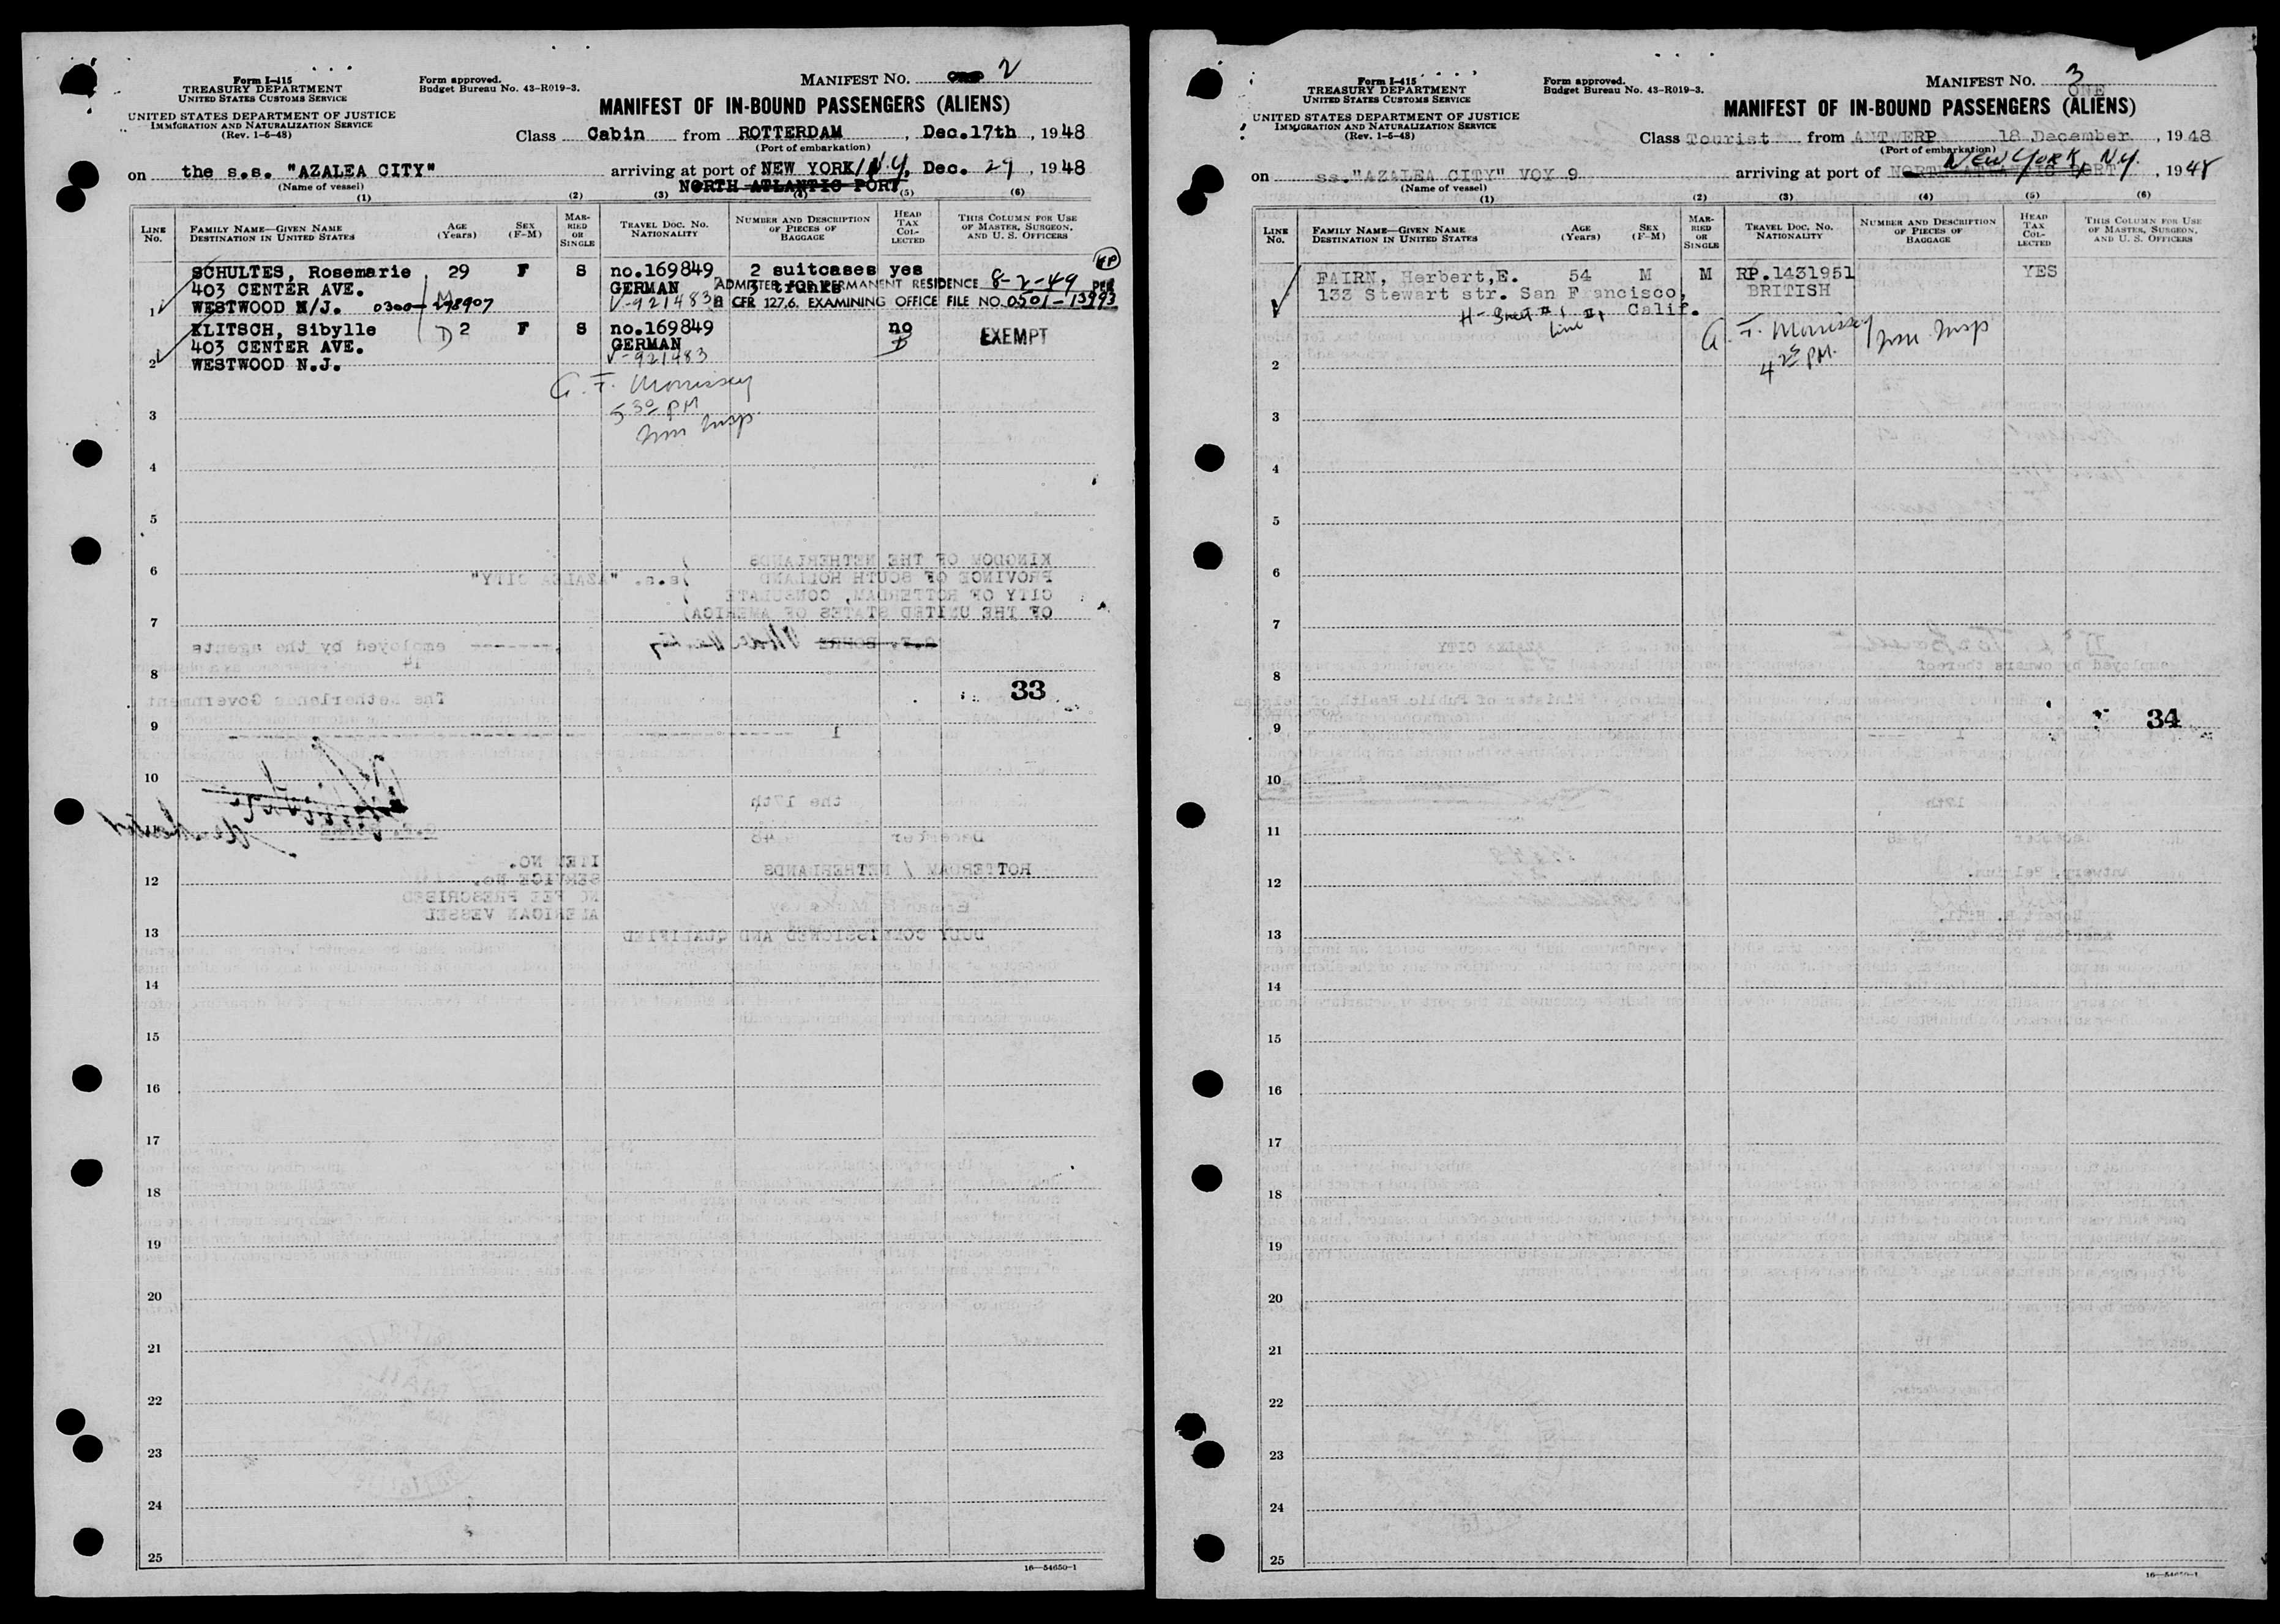 Form I-415
TREASURY DEPARTMENT
UNITED STATES CUSTOMS SERVICE
UNITED STATES DEPARTMENT OF JUSTICE
IMMIGRATION AND NATURALIZATION SERVICE
(Rev. 1-6-48)
Form approved.
Budget Bureau No. 43-R019-3.
MANIFEST NO. 2
MANIFEST OF IN-BOUND PASSENGERS (ALIENS)
Class Cabin from ROTTERDAM, Dec.17th, 1948
(Port of embarkation)
on the s.s. "AZALEA CITY" arriving at port of NEW YORK/N.Y, Dec. 29, 1948
(Name of vessel)
NORTH ATLANTIC PORT
(1) (2) (3) (4) (5) (6)
LINE No. FAMILY NAME—GIVEN NAME DESTINATION IN UNITED STATES AGE (Years) SEX (F-M) MARRIED OR SINGLE TRAVEL DOC. NO. NATIONALITY NUMBER AND DESCRIPTION OF PIECES OF BAGGAGE HEAD TAX COLLECTED THIS COLUMN FOR USE OF MASTER, SURGEON, AND U. S. OFFICERS
SCHULTES, Rosemarie 29 F S no.169849 2 suitcases yes
403 CENTER AVE. M GERMAN 3 trunks ADMITTED FOR PERMANENT RESIDENCE 8-2-49 PER
1 WESTWOOD N/J. 0300-298907 V-921483 8 CFR 127.6. EXAMINING OFFICE FILE NO. 0501-13993
KLITSCH, Sibylle D 2 F S no.169849 no EXEMPT
403 CENTER AVE. GERMAN
2 WESTWOOD N.J. V-921483
G. F. Morrissey
5 30 PM
Imm Insp.
3
4
5
6
7
8
33
9
10
11
12
13
14
15
16
17
18
19
20
21
22
23
24
25
16—54650-1
Form I-415
TREASURY DEPARTMENT
UNITED STATES CUSTOMS SERVICE
UNITED STATES DEPARTMENT OF JUSTICE
IMMIGRATION AND NATURALIZATION SERVICE
(Rev. 1-6-48)
Form approved.
Budget Bureau No. 43-R019-3.
MANIFEST NO. 3
ONE
MANIFEST OF IN-BOUND PASSENGERS (ALIENS)
Class Tourist from ANTWERP 18 December, 1948
(Port of embarkation)
NEW YORK, N.Y.
on ss."AZALEA CITY" VOY 9 arriving at port of NORTH ATLANTIC PORT, 1948
(Name of vessel)
(1) (2) (3) (4) (5) (6)
LINE No. FAMILY NAME—GIVEN NAME DESTINATION IN UNITED STATES AGE (Years) SEX (F-M) MARRIED OR SINGLE TRAVEL DOC. NO. NATIONALITY NUMBER AND DESCRIPTION OF PIECES OF BAGGAGE HEAD TAX COLLECTED THIS COLUMN FOR USE OF MASTER, SURGEON, AND U. S. OFFICERS
FAIRN, Herbert,E. 54 M M RP.1431951 YES
133 Stewart str. San Francisco, BRITISH
1 Calif.
G. F. Morrissey Imm Insp
2 4 25 PM.
3
4
5
6
7
8
34
9
10
11
12
13
14
15
16
17
18
19
20
21
22
23
24
25